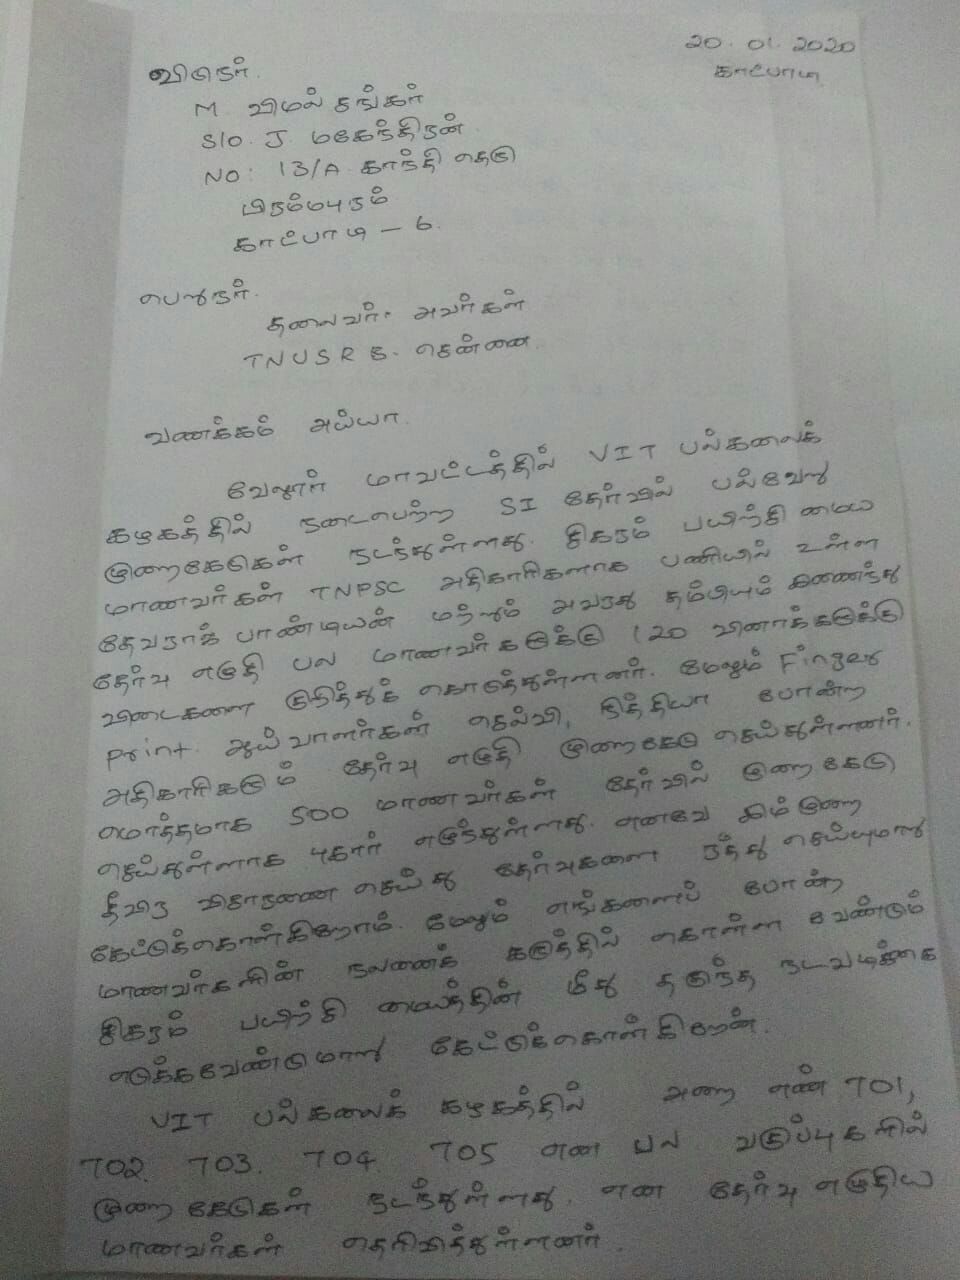 20.01.2020
காட்பாடி
விடுநர்.
M. விமல் சங்கர்
S/O. J. மகேந்திரன்.
NO: 13/A காந்தி தெரு
பிரம்மபுரம்
காட்பாடி - 6.
பெறுநர்.
தலைவர். அவர்கள்
TNUSRB. சென்னை.
வணக்கம் அய்யா.
வேலூர் மாவட்டத்தில் VIT பல்கலைக்
கழகத்தில் நடைபெற்ற SI தேர்வில் பல்வேறு
முறைகேடுகள் நடந்துள்ளது. சிகரம் பயிற்சி மைய
மாணவர்கள் TNPSC அதிகாரிகளாக பணியில் உள்ள
தேவராஜ் பாண்டியன் மற்றும் அவரது தம்பியும் இணைந்து
தேர்வு எழுதி பல மாணவர்களுக்கு 120 வினாக்களுக்கு
விடைகளை குறித்துக் கொடுத்துள்ளனர். மேலும் Finger
print. ஆய்வாளர்கள் செல்வி, நித்தியா போன்ற
அதிகாரிகளும் தேர்வு எழுதி முறைகேடு செய்துள்ளனர்.
மொத்தமாக 500 மாணவர்கள் தேர்வில் முறைகேடு
செய்துள்ளாக புகார் எழுந்துள்ளது. எனவே இம்முறை
தீவிர விசாரணை செய்து தேர்வுகளை ரத்து செய்யுமாறு
கேட்டுக்கொள்கிறோம். மேலும் எங்களைப் போன்ற
மாணவர்களின் நலனைக் கருத்தில் கொள்ள வேண்டும்
சிகரம் பயிற்சி மையத்தின் மீது தகுந்த நடவடிக்கை
எடுக்கவேண்டுமாறு கேட்டுக்கொள்கிறேன்.
VIT பல்கலைக் கழகத்தில் அறை எண் 701,
702. 703. 704. 705 என பல வகுப்புகளில்
முறைகேடுகள் நடந்துள்ளது. என தேர்வு எழுதிய
மாணவர்கள் தெரிவித்துள்ளனர்.